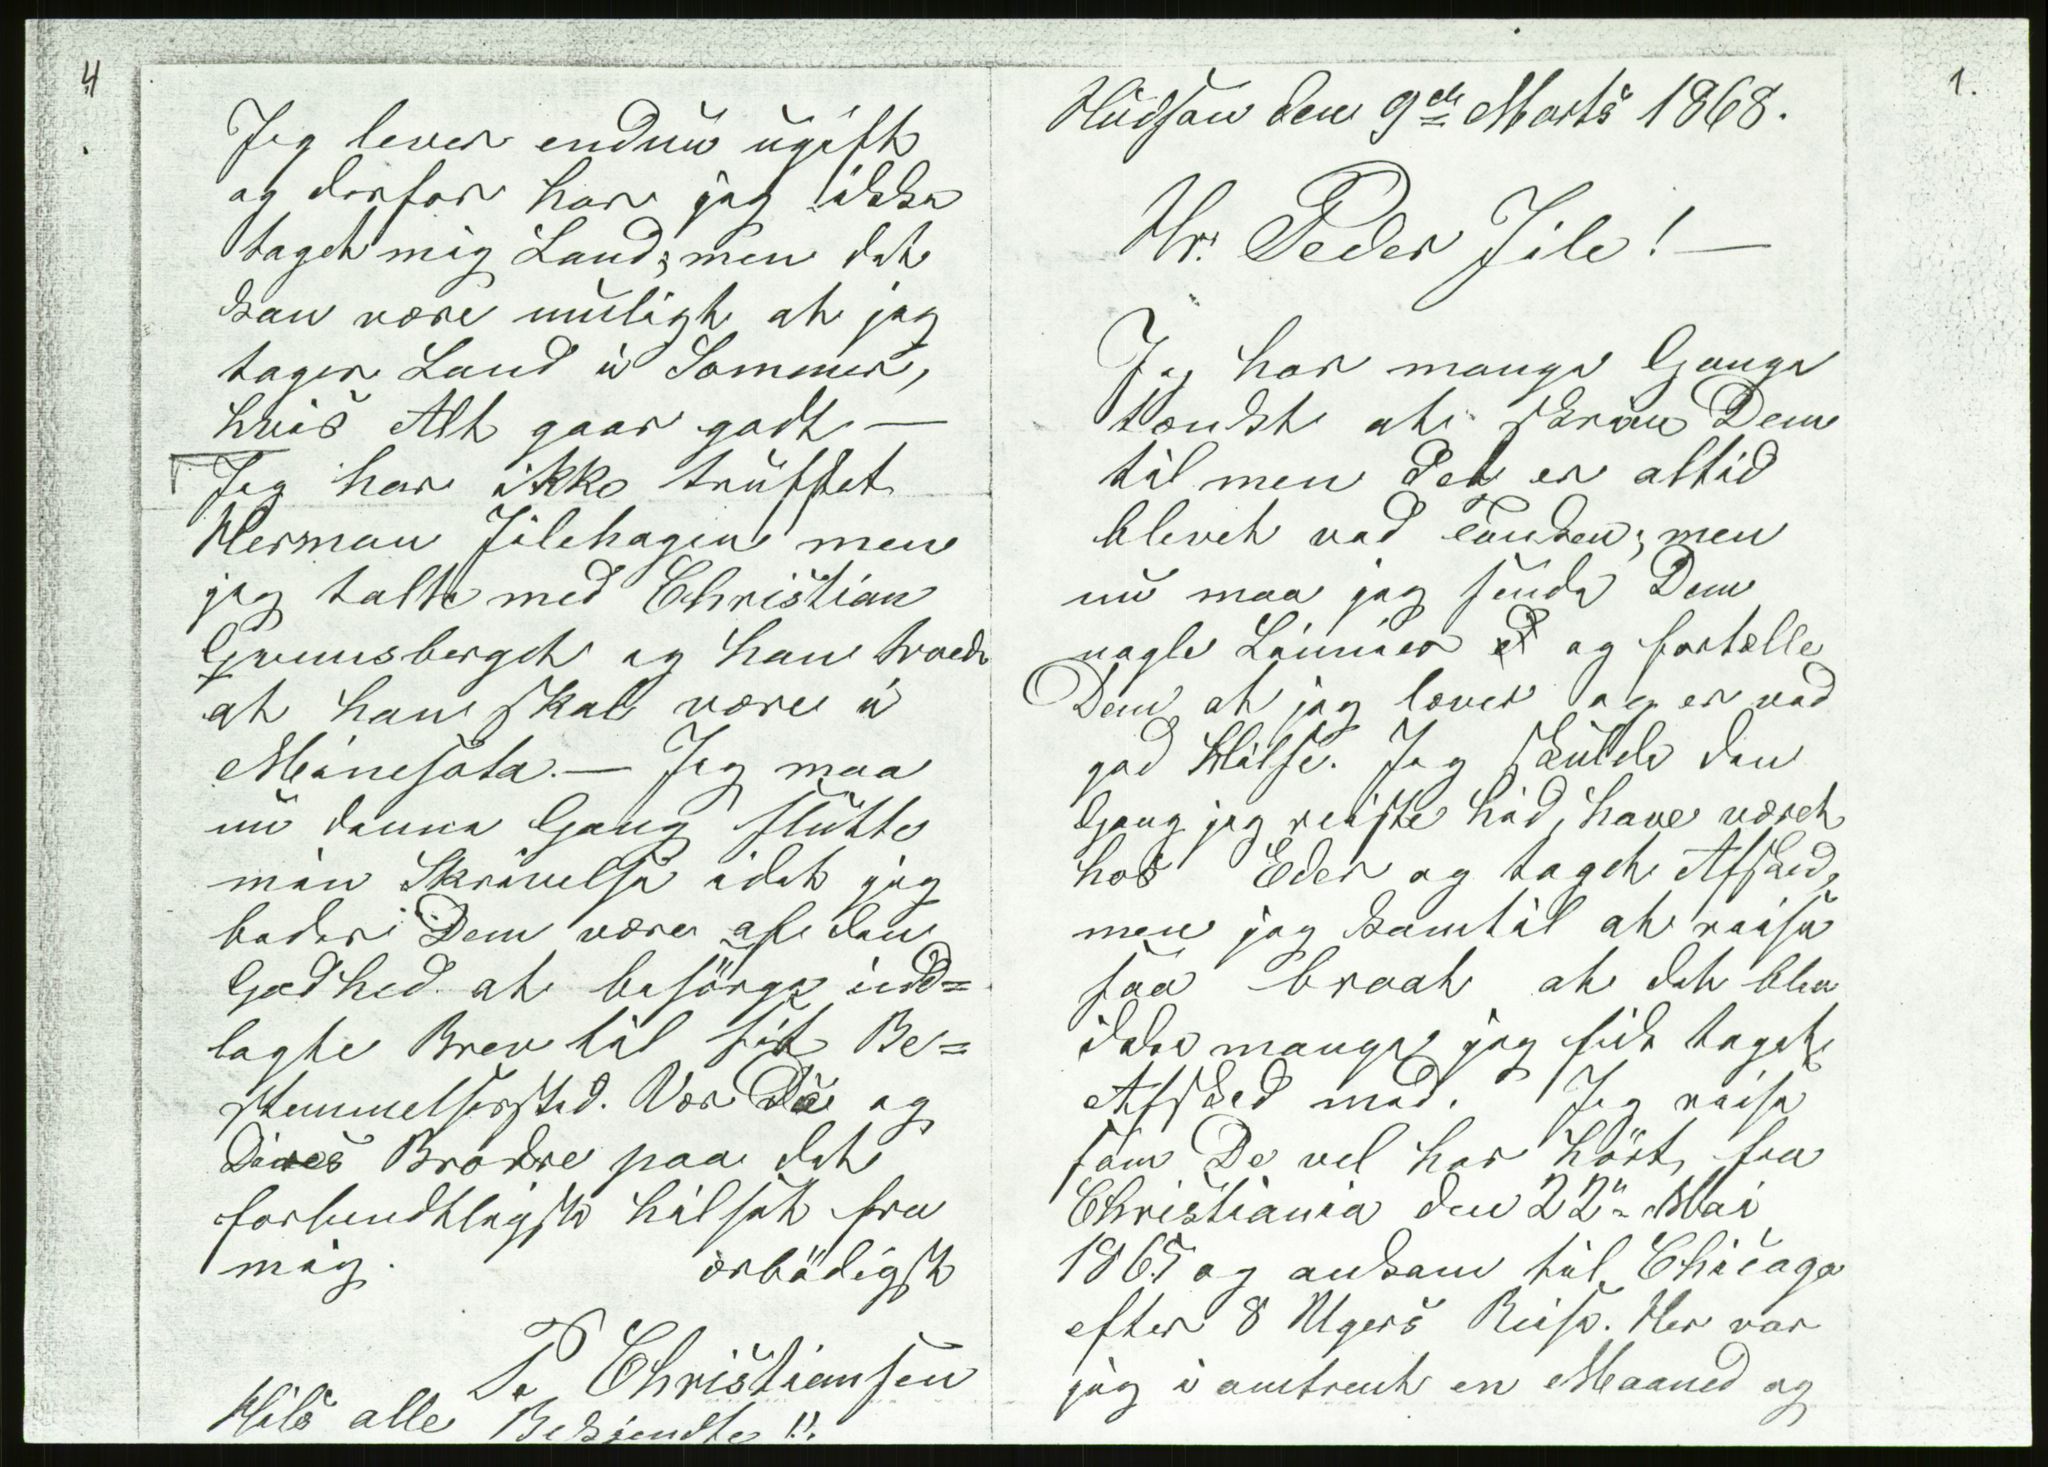 4
Jeg lever endnu ugift
og derfor har jeg ikke
taget mig Land; men det
kan være muligt at jeg
tager Land i Sommer,
hvis Alt gaar godt —
Jeg har ikke truffet
Herman Jilehagen men
jeg talte med Christian
Grumsberget og han troede
at han skal være i
Minesota. — Jeg maa
nu denne Gang slutte
min Skrivelse idet jeg
beder Dem være af den
Godhed at besörge ind=
lagte Brev til sit Be=
stemmelsessted. Vær De og
Deres Brødre paa det
forbindtligste hilset fra
mig. ærbödigst
P. Christiansen
Hils alle Bekjendte !!.
1.
Hudson den 9de Marts 1868.
Hr. Peder Jile! —
Jeg har mange Gange
tænkt at skrive Dem
til men det er altid
blevet ved Tanken; men
nu maa jeg sende Dem
nogle Linnier og fortælle
Dem at jeg lever og er ved
god Hilse. Jeg skulde den
Gang jeg reiste hid, have været
hos Eder og taget Afsked,
men jeg kom til at reise
saa braat at det blev
ikke mange jeg fik taget
Afsked med. Jeg reise
som De vel har hört, fra
Christiania den 22n Mai
1865 og ankom til Chicago
efter 8 Ugers Reise. Her var
jeg i omtrent en Maaned og